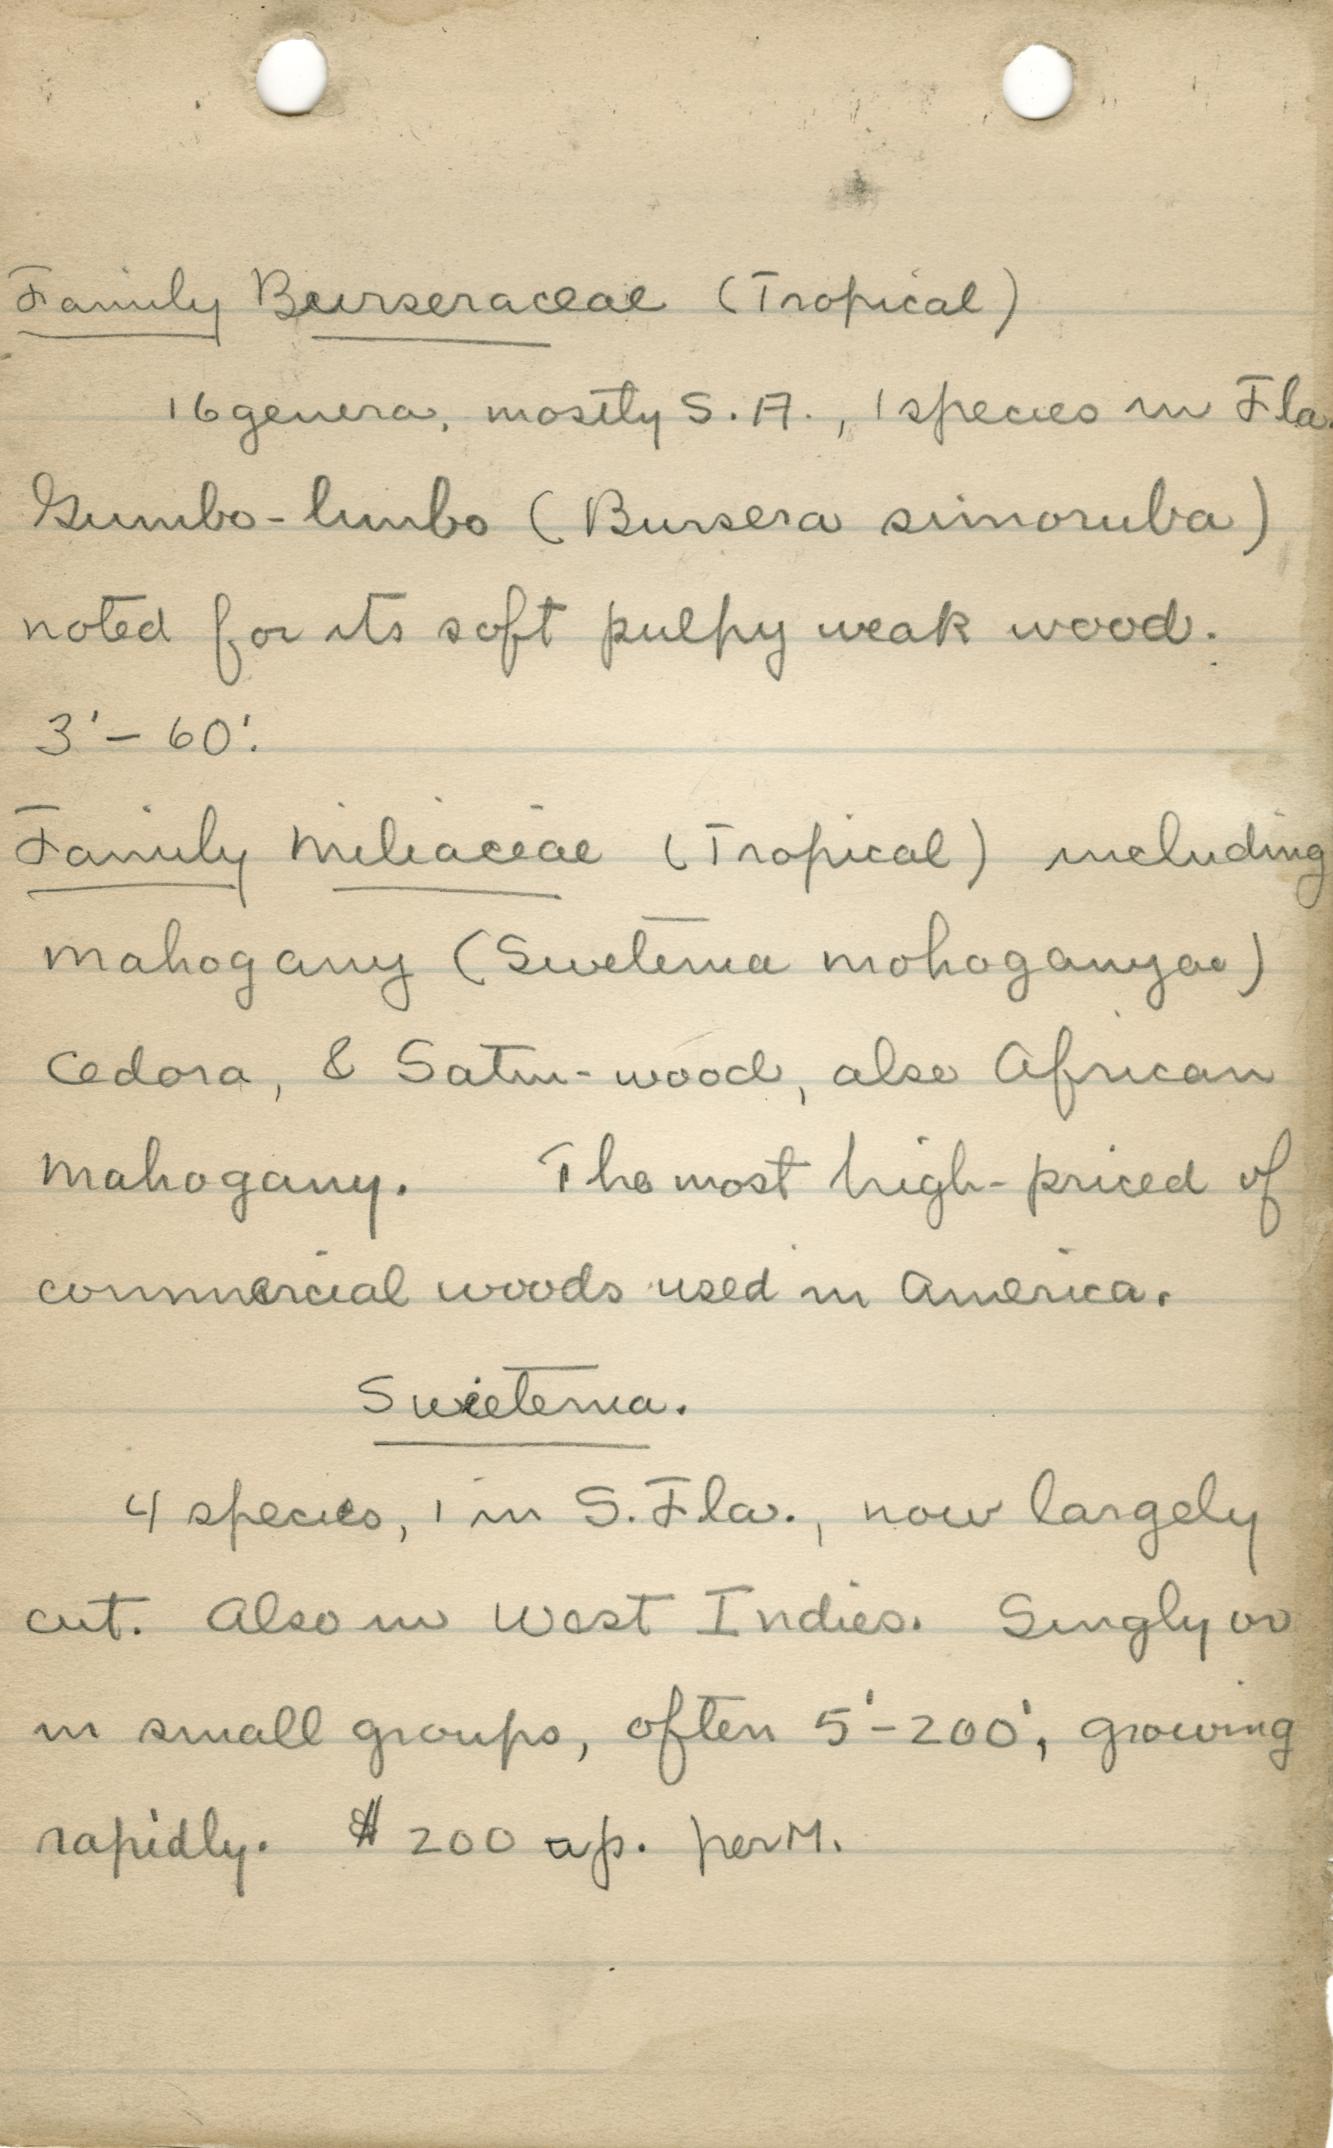 Family Burseraceae (Tropical)
16 genera, mostly S. A., 1 species in Fla.
Gumbo-limbo (Bursera simoruba)
noted for its soft pulpy weak wood.
3'- 60'.
Family Miliaceae (Tropical) including
Mahogany (Swetenia mohoganyae)
Cedora, & Satin-wood, also African
Mahogany. The most high-priced of
commercial woods used in America.
Swietenia.
4 species, 1 in S. Fla., now largely
cut. Also in West Indies. Singly or
in small groups, often 5'-200', growing
rapidly. $200 up. per M.